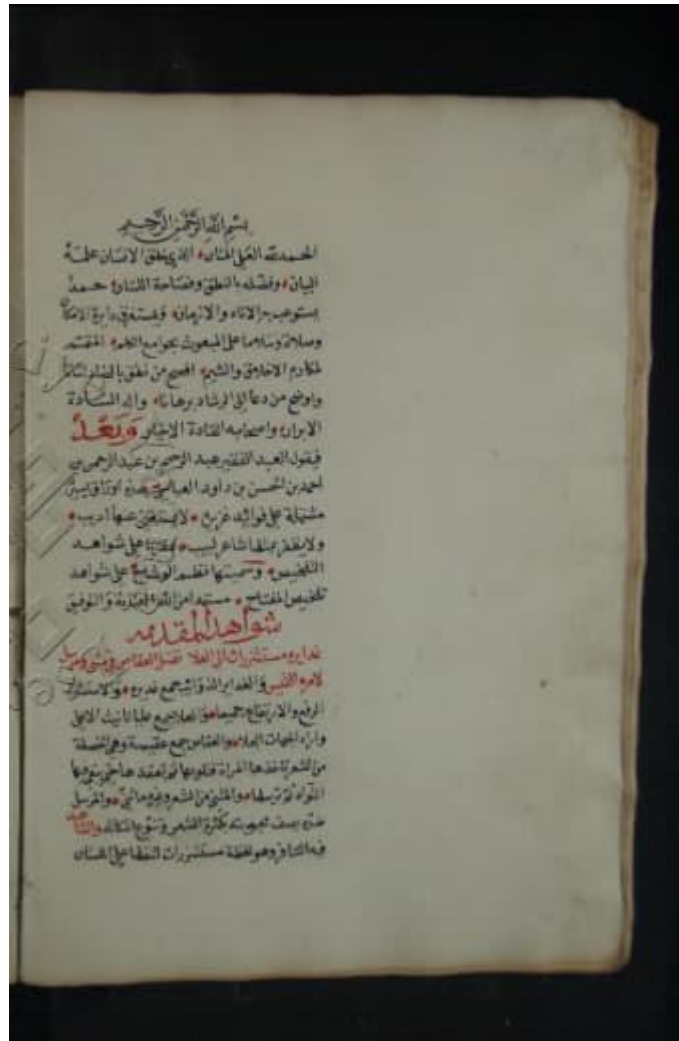 بسم الله الرحمن الرحيم
الحمد لله العلي المنان الذي خلق الانسان علمه
البيان وفضله بالنطق وفصاحة اللسان حمدا
يستوعب الاناء والازمان ويستغرق دايرة الامكان
وصلاة وسلاما على المبعوث بجوامع الكلم المتمم
لمكارم الاخلاق والشيم افصح من نطق بالضاد لسانا
واوضح من دعا الى الرشاد برهانا واله السادة
الابرار واصحابه القادة الاخيار وبعد
فيقول العبد الفقير عبد الرحيم بن عبد الرحمن بن
احمد بن الحسن بن داود العباسي هذه اوراق يسيرة
مشتملة على فوائد غزيرة لا يستغني عنها اديب
ولا يظفر بمثلها شاعر لبيب على شواهد
التلخيص وسميتها نظم الوشاح على شواهد
تلخيص المفتاح مستمدا من الله الهداية والتوفيق
شواهد المقدمه
غدايره مستشزرات الى العلا تضل العقاص في مثنى ومرسل
لامرء القيس والغداير الذوائب جمع غديره والاستشزار
الرفع والارتفاع جميعا والعلا جمع عليا تانيث الاعلى
واراد الجهات العلا والعقاص جمع عقيصة وهي الخصلة
من الشعر تاخذها المراة فتلويها ثم تعقدها حتى يبقى فيها
التواء ثم ترسلها والمثنى من الشعر وغيره ما ثني والمرسل
ضده يصف محبوبته بكثرة الشعر والشاهد
فيه التنافر وهو لفظة مستشزرات لثقلها على اللسان